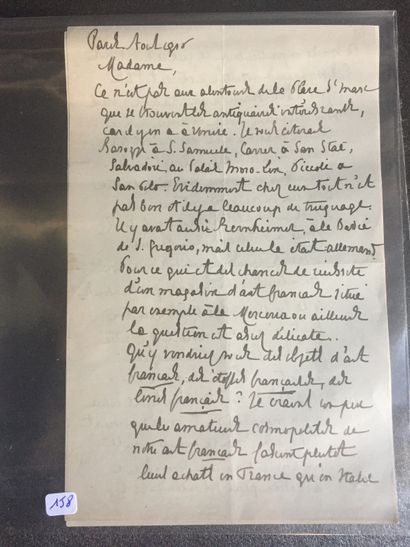 Paris Août 1916
Madame,
Ce n'est pas aux alentours de la Place St Marc
que se trouvent les antiquaires intéressants,
car il y en a à Venise. Je vous citerai
Barozzi à S. Samuele, Carrer à San Stae,
Salvadori au Palais Moro-Lin, Piccoli à
San Polo. Evidemment chez eux tout n'est
pas bon et il y a beaucoup de truquage.
Il y avait aussi Bernheimer, à la Badia
de S. Gregorio, mais celui là était allemand.
Pour ce qui est des chances de réussite
d'un magasin d'art français situé
par exemple à la Merceria ou ailleurs
la question est assez délicate..
Qu'y vendriez vous des objets d'art
français, des étoffes françaises, des
livres français? Je crains un peu
que les amateurs cosmopolites de
notre art français fassent plutôt
leurs achats en France qu'en Italie
158